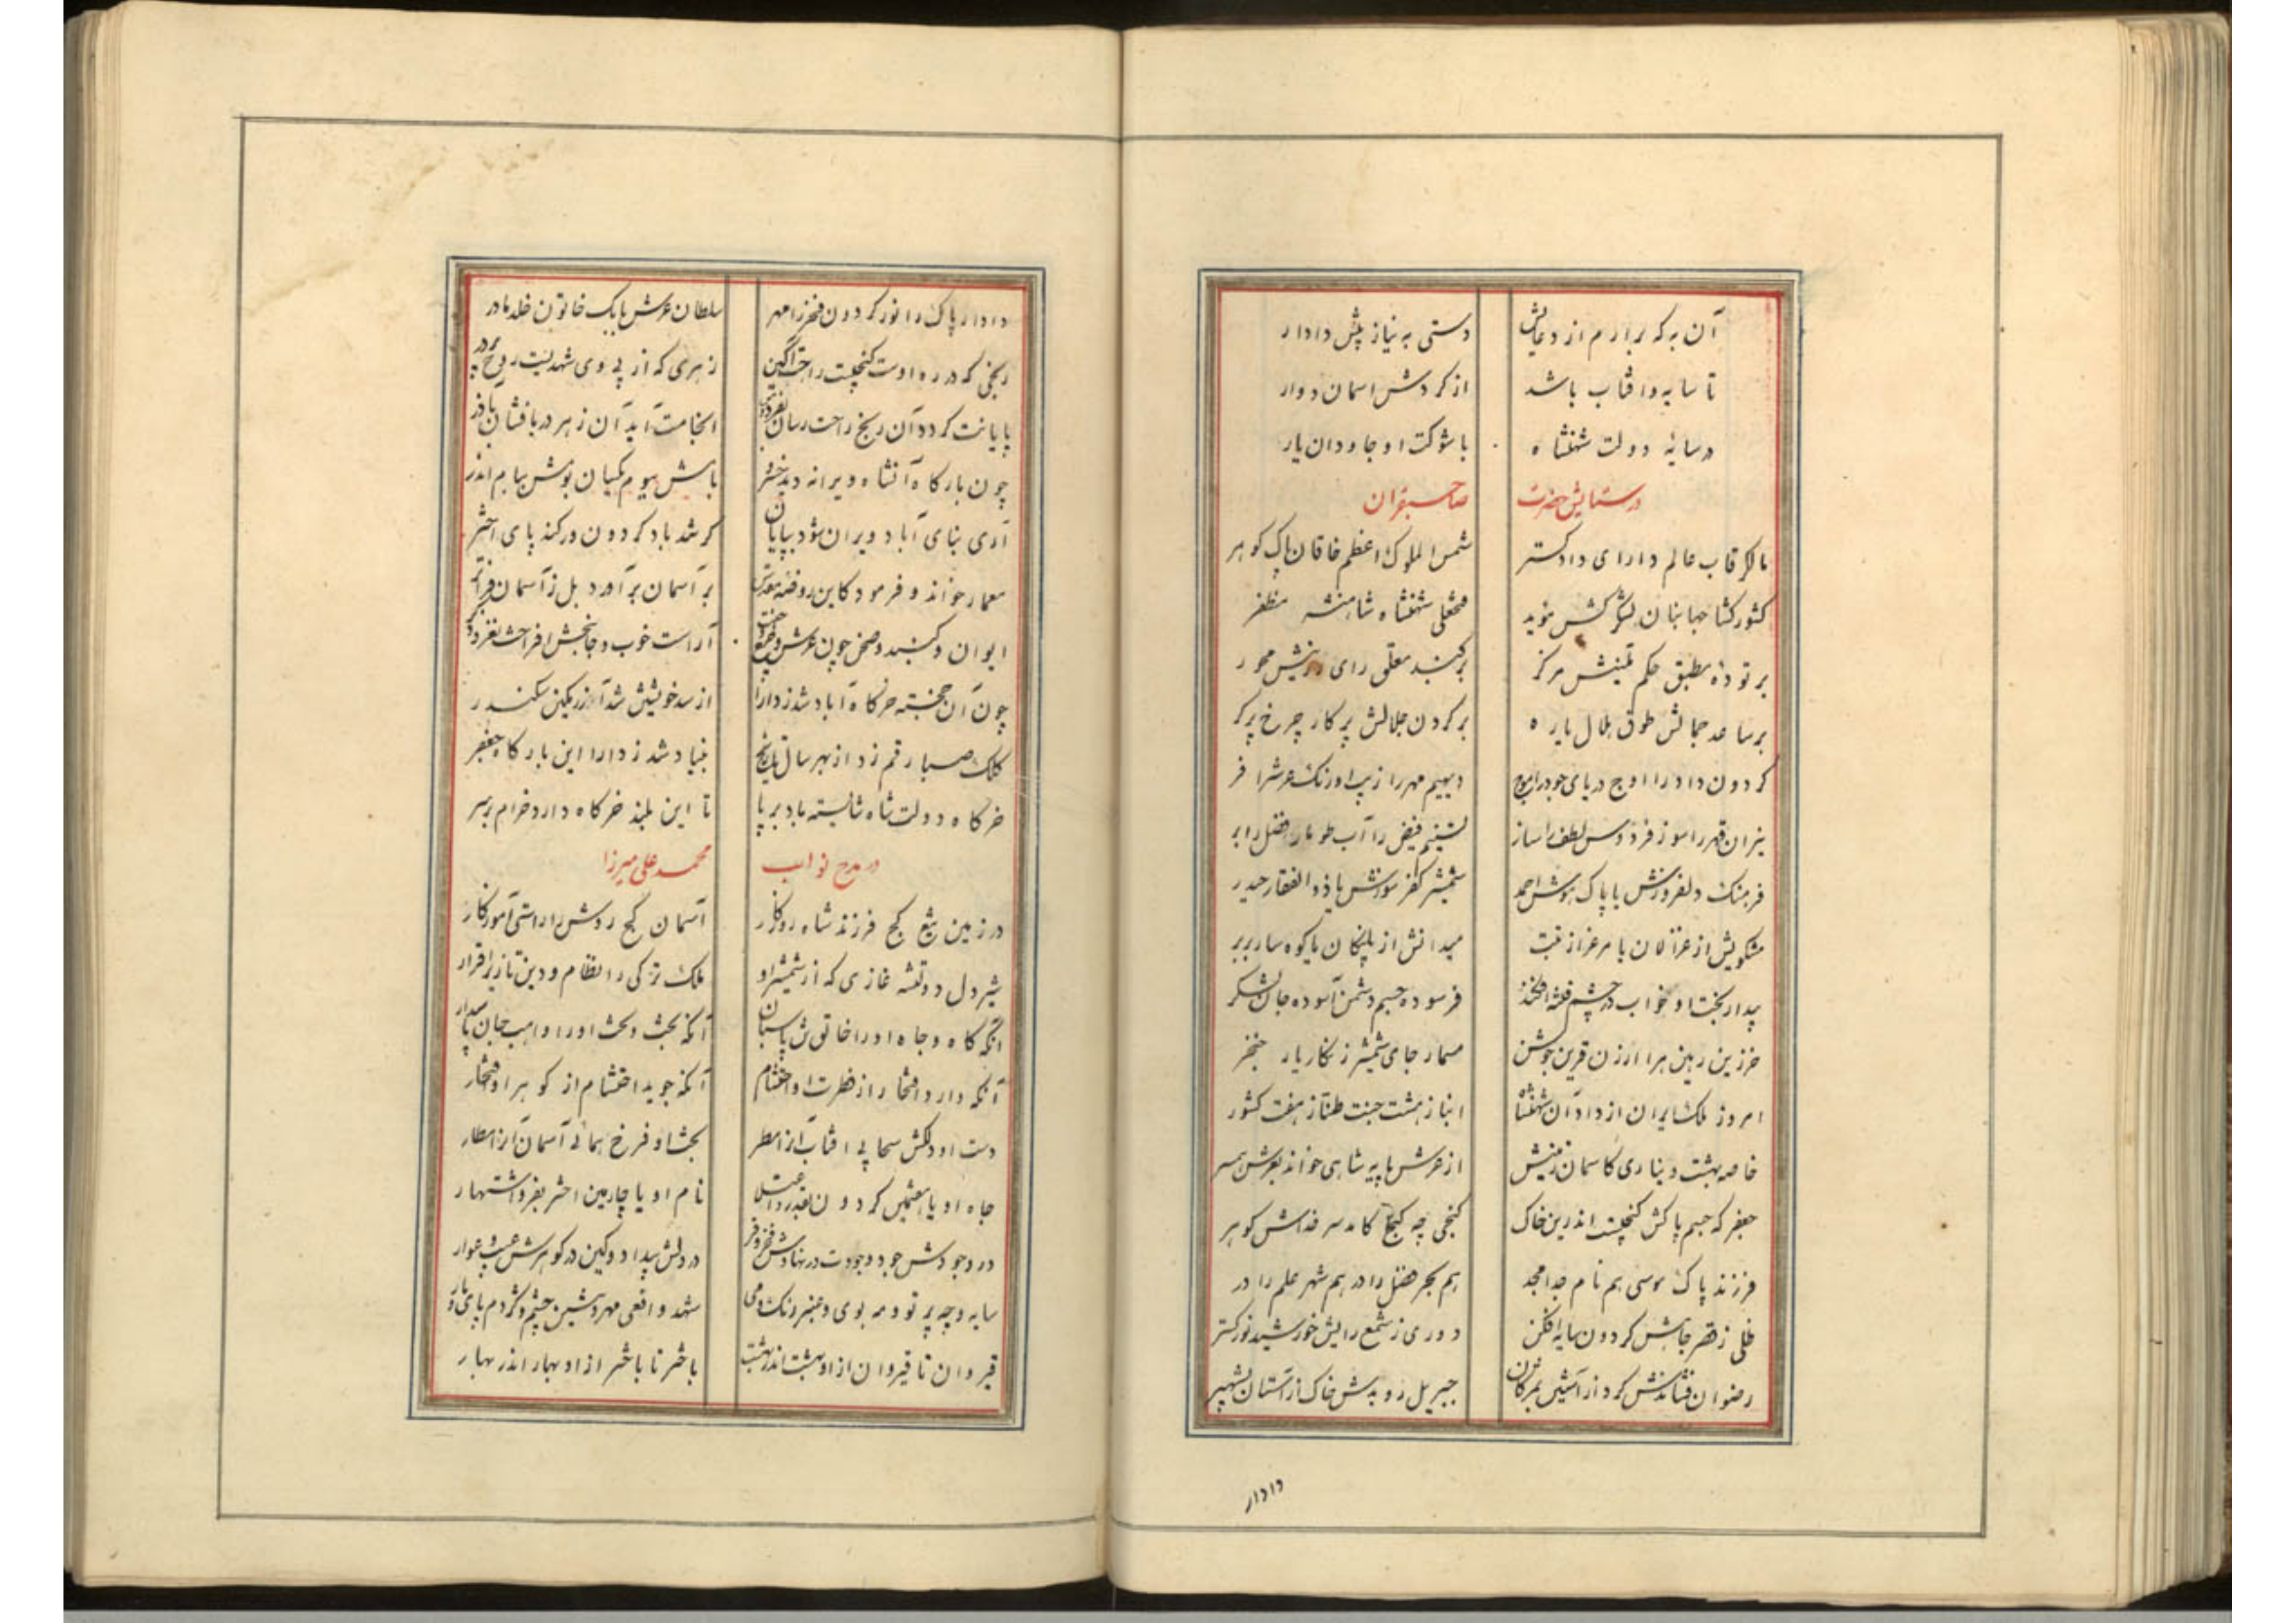 آن به که برارم از دعایش دستی به نیاز پیش دادار
تا سایه و آفتاب باشد از گردش اسمان دوار
در سایهٔ دولت شهنشاه با شوکت او جاودان یار
در ستایش حضرت صاحبقران
مالک رقاب عالم دارای دادگستر شمس الملوک اعظم خاقان پاک گوهر
کشور گشا جهانبان لشگرکش موید فتحعلی شهنشاه شاهنشه مظفر
بر تودهٔ مطبق حکم مرکز بر گنبد معلق رای محور
بر ساعد جمالش طوق هلال یاره بر گردن جلالش پرکار چرخ پرگر
گردون داد را اوج دریای جود را موج دیهیم مهر را زیب اورنگ عرش را فر
نیران قهر را سوز فردوس لطف را ساز تسنیم فیض را آب طومار فضل را بر
فرهنگ دلفروزش با پاک هوش احمد شمشیر کفر سوزش با ذوالفقار حیدر
مشکویش از غزالان با مرغزار تبت میدانش از پلنگان با کوهسار بربر
بیدار بخت او خواب در چشم فتنه افکند فرسوده جسم دشمن آسوده جان لشگر
خرزین رهین هرا ارزن قرین جوشن مسمار جامی شمشیر زنگار یار خنجر
امروز ملک ایران از داد آن شهنشاه انباز هشت جنت طناز هفت کشور
خاصه بهشت دیناری کاسمان زمینش از عرش پایه شاهی خواند بعرش همسر
جعفر که جسم پاکش گنجیست اندرین خاک گنجی چه گنج کامد سر خداش گوهر
فرزند پاک موسی هم نام جد امجد هم بحر فضل را در هم شهر علم را در
ظلی ز قصر جاهش گردون سایه افکن دوری ز شمع رایش خورشید نورگستر
رضوان فشاندش گرد از آستین بمژگان جبریل روبدش خاک از آستان بشهپر
دادار
دادار پاک را نور گردون فخر را مهر سلطان عرش بابک خاتون خلد مادر
رنجی که در ره اوست گنجیست راحت آگین زهری که از پی وی شهدیست روح پرور
پایانت گردد آن رنج راحت رسان انجامت آید آن زهر
چون بارگاه آنشاه ویرانه دید خسرو
آری بنای آباد ویران شود بپایان گر شد باد گردون ور کند پای اختر
معمار خواند و فرمود کاین روضه مقدس بر آسمان برآورد بل ز آسمان فراتر
ایوان و گنبد و صحن چون عرش آراست خوب و جانبخش افراخت نغز و
چون آن خجسته خرگاه آباد شد ز دارا
کلک صبا رقم زد از بهر سال تاریخ بنیاد شد ز دارا این بارگاه جعفر
خرگاه دولت شاه شایسته باد بر پا تا این بلند خرگاه دارد خرام بر سر
در مدح نواب محمد علی میرزا
در زمین تیغ کج فرزند شاه روزگار آسمان کج روش را راستی آموزگار
شیر دل دولتشه غازی که از شمشیر او ملک ترکی را نظام و دین تازی را قرار
آنکه گاه و جاه او را خاتونش پاسبان آنکه بخت و تخت او را واهب جان پاسدار
آنکه دارد افتخار از فطرت او احتشام آنکه جوید احتشام از گوهر او افتخار
دست او دلکش سحابی آفتاب آنرا مطر بخت او فرخ همائی آسمان آنرا مطار
جاه او یا هشتمین گردون بقدر و اعتلا نام او یا چارمین اختر بفر و اشتهار
در وجودش جود و جودت در نهادش فخر و فر در دلش بیداد و کین در گوهرش عیب و عوار
سایه و چه پرتو و مه بوی و عنبر رنگ و می شهد و افعی مهر و شبپره چشم و گژدم پای و مار
قیروان تا قیروان از او بهشت اندر بهشت باختر تا باختر از او بهار اندر بهار